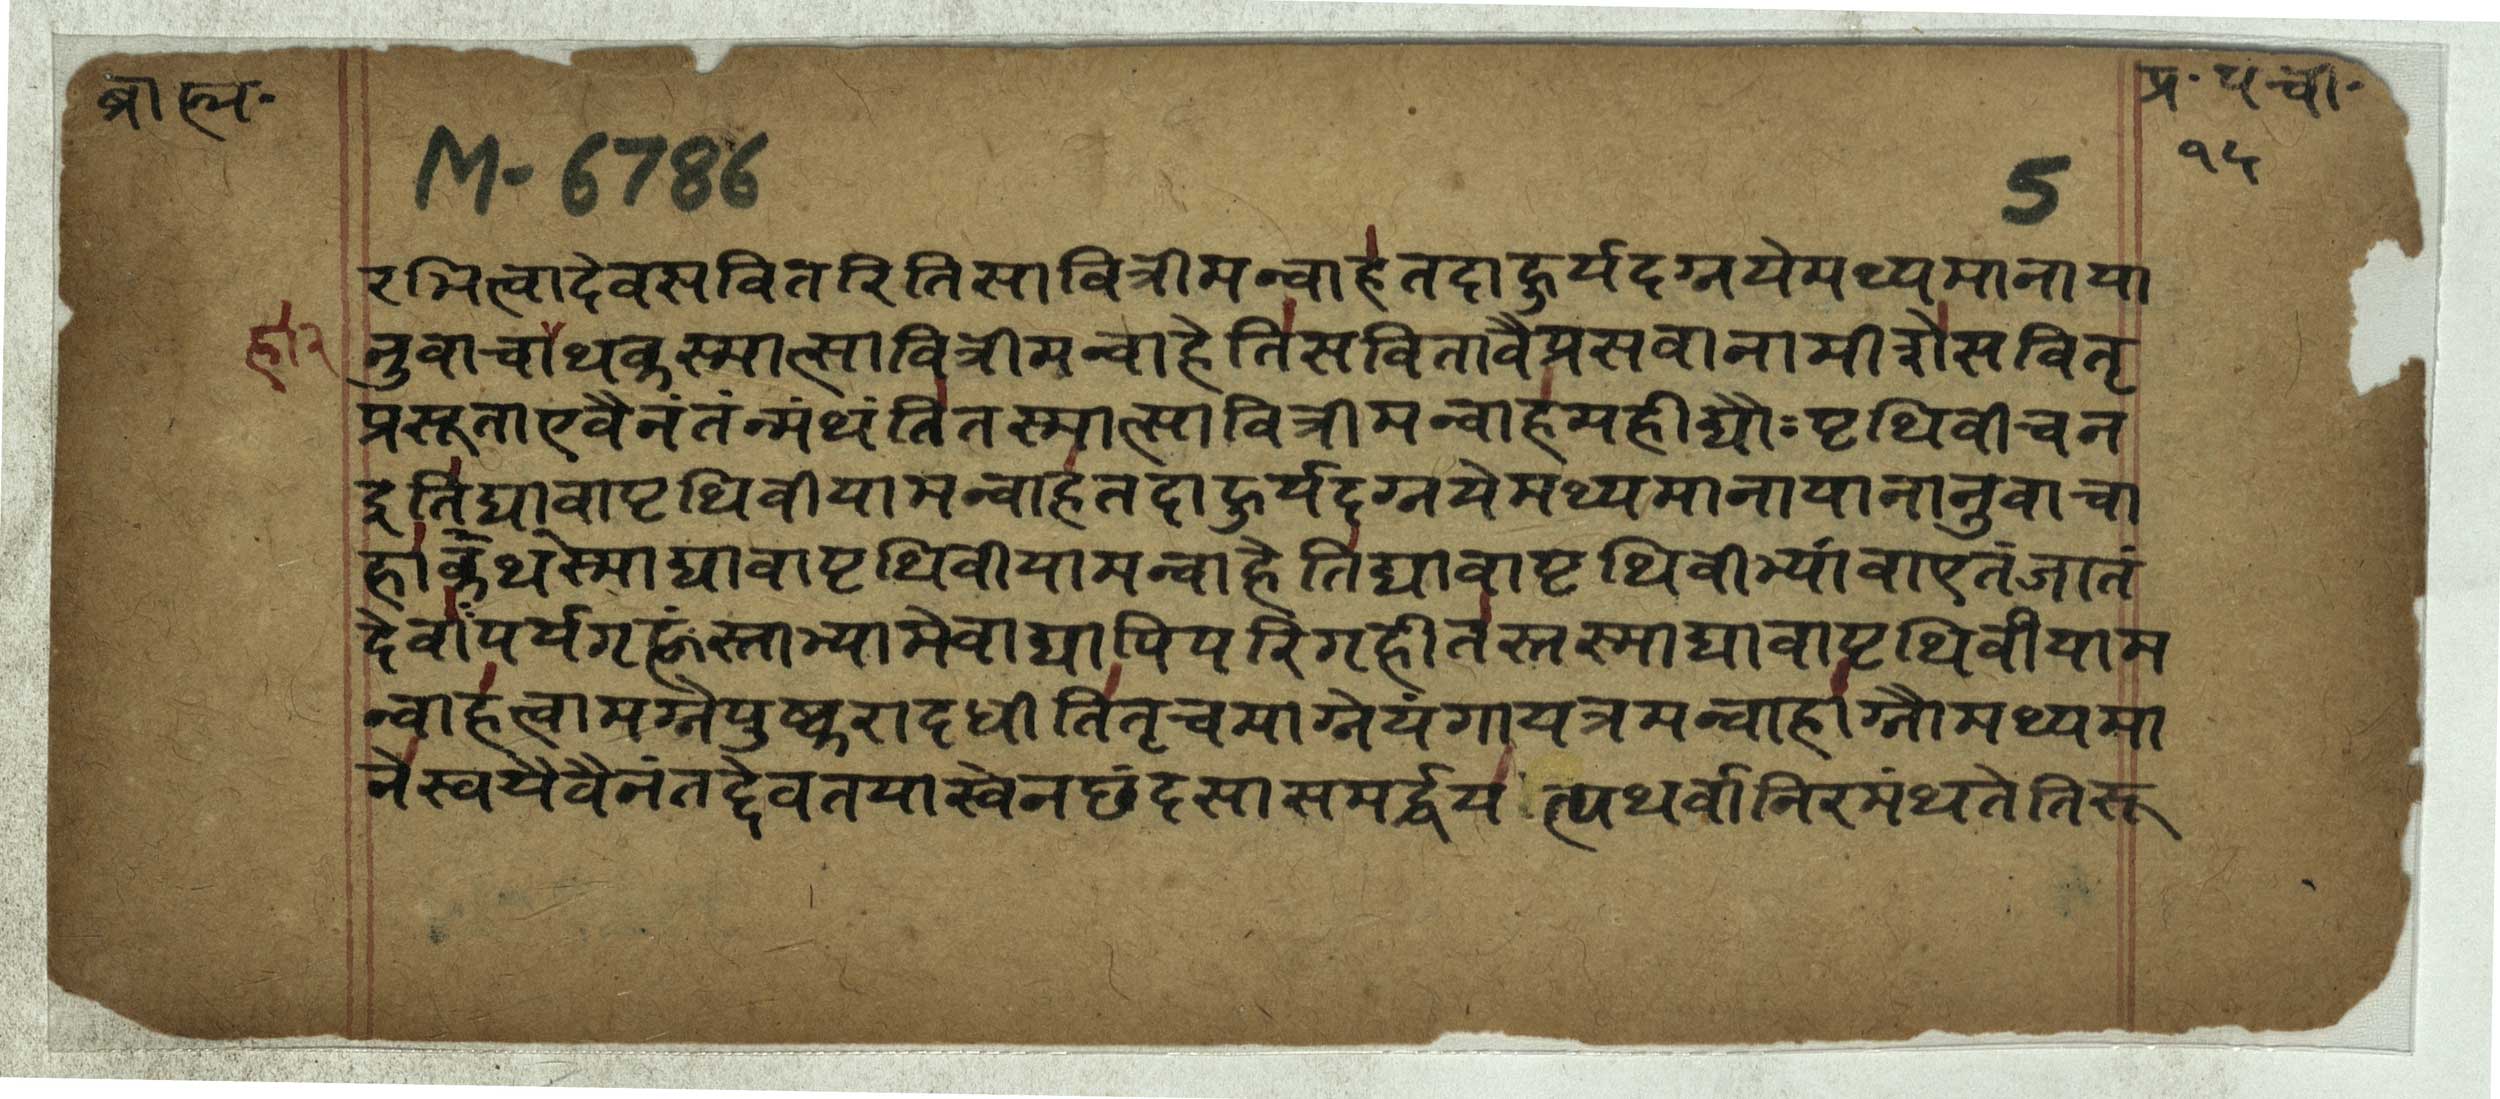 ब्रा ह्म॰
प्र॰ पञ्ची॰
१५
M-6786
5
रभित्वादेवसवितरितिसावित्रीमन्वाहतदाहुर्यदग्नयेमथ्यमानाया
हाऽ२
नुवाचाथकस्मात्सावित्रीमन्वाहेतिसवितावैप्रसवानामीशेसवितृ
प्रसूताएवैनंतंन्मंथंतितस्मात्सावित्रीमन्वाहमहीद्यौःपृथिवीचन
इतिद्यावापृथिवीयामन्वाहतदाहुर्यदग्नयेमथ्यमानायानानुवाचा
हाकथस्माद्यावापृथिवीयामन्वाहेतिद्यावापृथिवीभ्यांवाएतंजातं
देवांपर्यगृह्णंस्ताभ्यामेवाद्यापिपरिगृहीतस्तस्माद्यावापृथिवीयाम
न्वाहत्वामग्नेपुष्करादधीतितृचमाग्नेयंगायत्रमन्वाहाग्नौमथ्यमा
नेस्वयैवैनंतद्देवतयास्वेनछंदसासमर्द्धय त्यथर्वानिरमंथतेतिरू